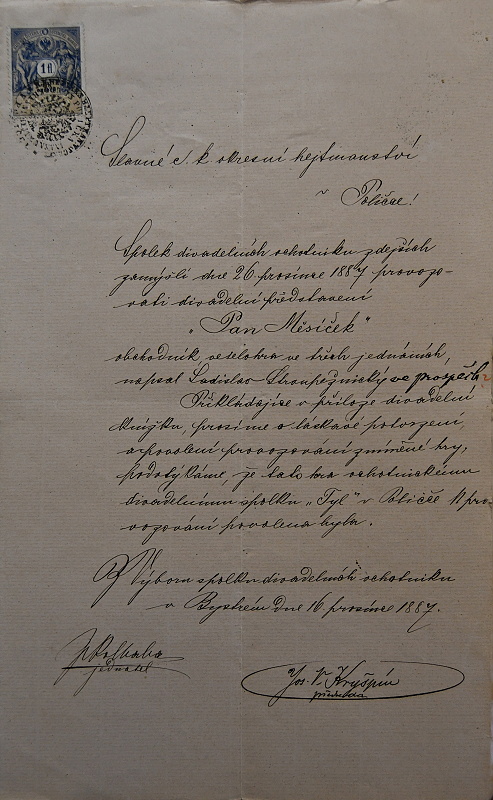 1 fl
Slavné c. k. okresní hejtmanství
v Poličce!
Spolek divadelních ochotníku zdejších
zamýšlí dne 26. prosince 1887 provozo-
vati divadelní představení
„Pan Měsíček"
obchodník, veselohra ve třech jednáních,
napsal Ladislav Stroupežnický ve prospěch
Překládajíce v příloze divadelní
knížku, prosíme o laskavé potvrzení,
a povolení provozování zmíněné hry,
podotýkáme, že tato hra ochotnickému
divadelnímu spolku „Tyl" v Poličce k pro-
vozování povolena byla.
Výbor spolku divadelních ochotníku
v Bystrém dne 16. prosince 1887.
jednatel
Jos. V. Kryšpín
předseda